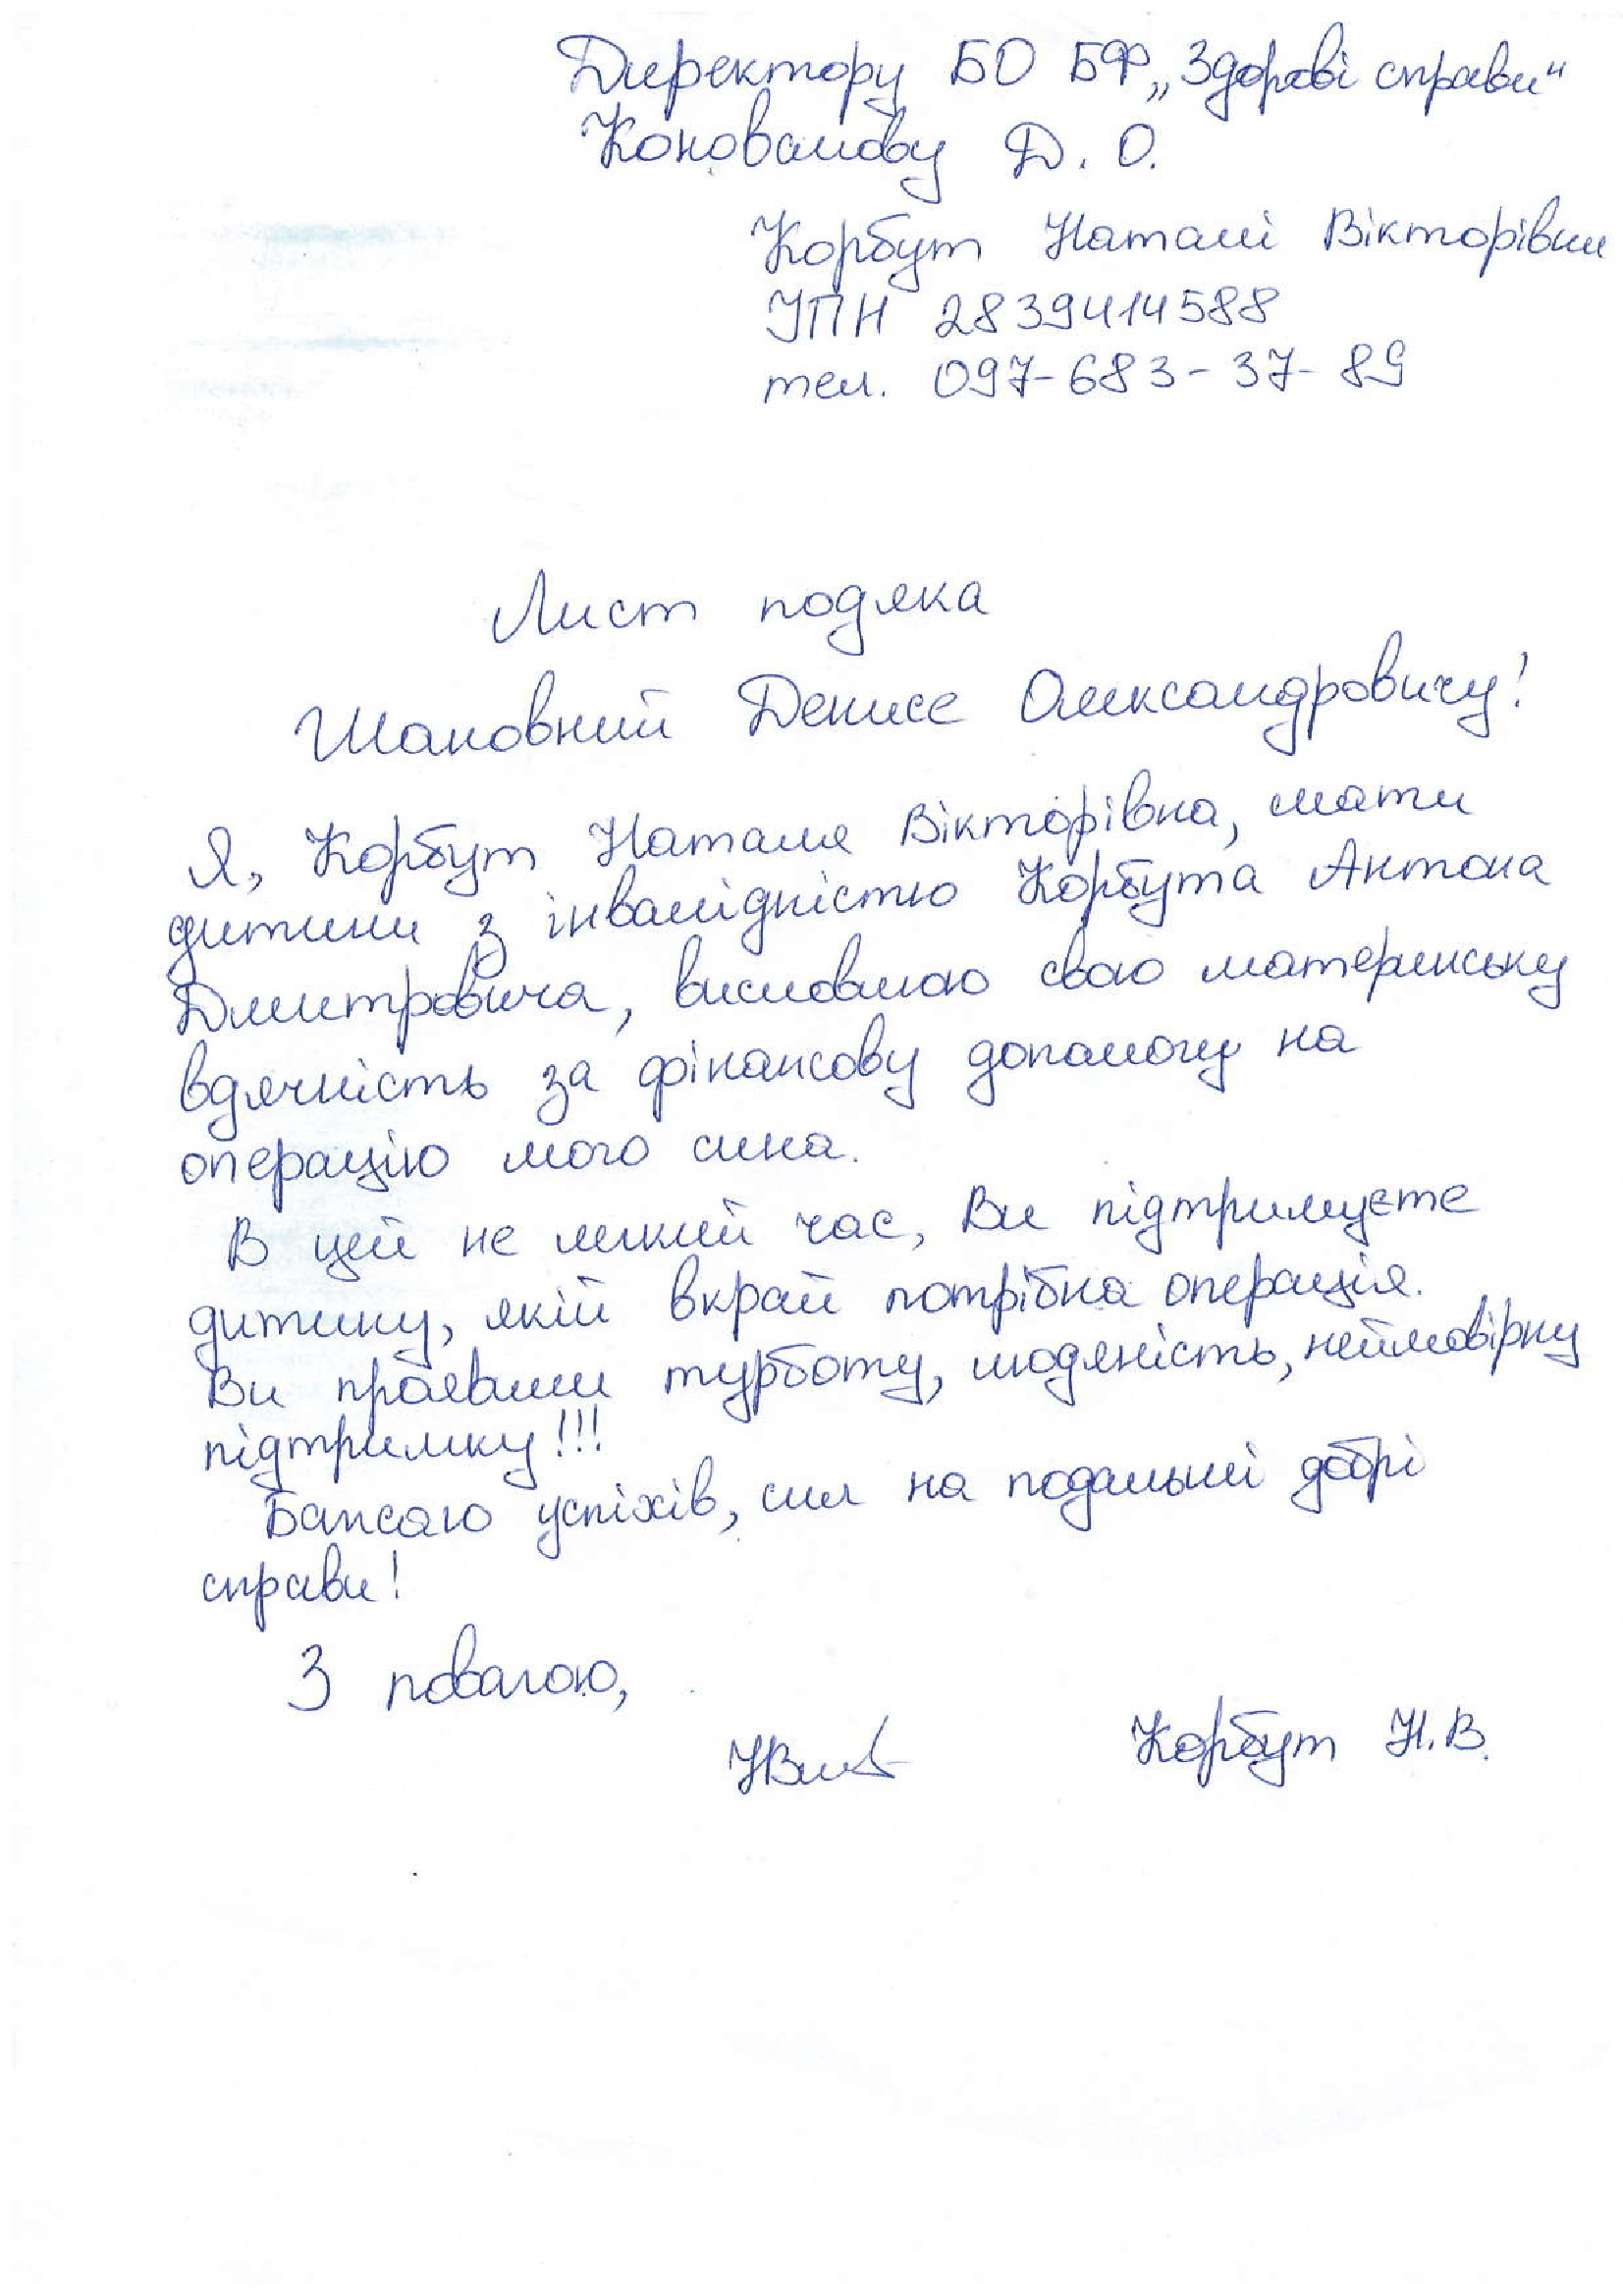 Директору БО БФ „Здорові справи"
Коновалову Д. О.
Корбут Наталі Вікторівни
ІПН 2839414588
тел. 097-683-37-89
Лист подяка
Шановний Денисе Олександровичу!
Я, Корбут Наталія Вікторівна, мати
дитини з інвалідністю Корбута Антона
Дмитровича, висловлюю свою материнську
вдячність за фінансову допомогу на
операцію мого сина.
В цей не легкий час, Ви підтримуєте
дитину, якій вкрай потрібна операція.
Ви проявили турботу, людяність, неймовірну
підтримку!!!
Бажаю успіхів, сил на подальші добрі
справи!
З повагою,
Корбут Н.В.